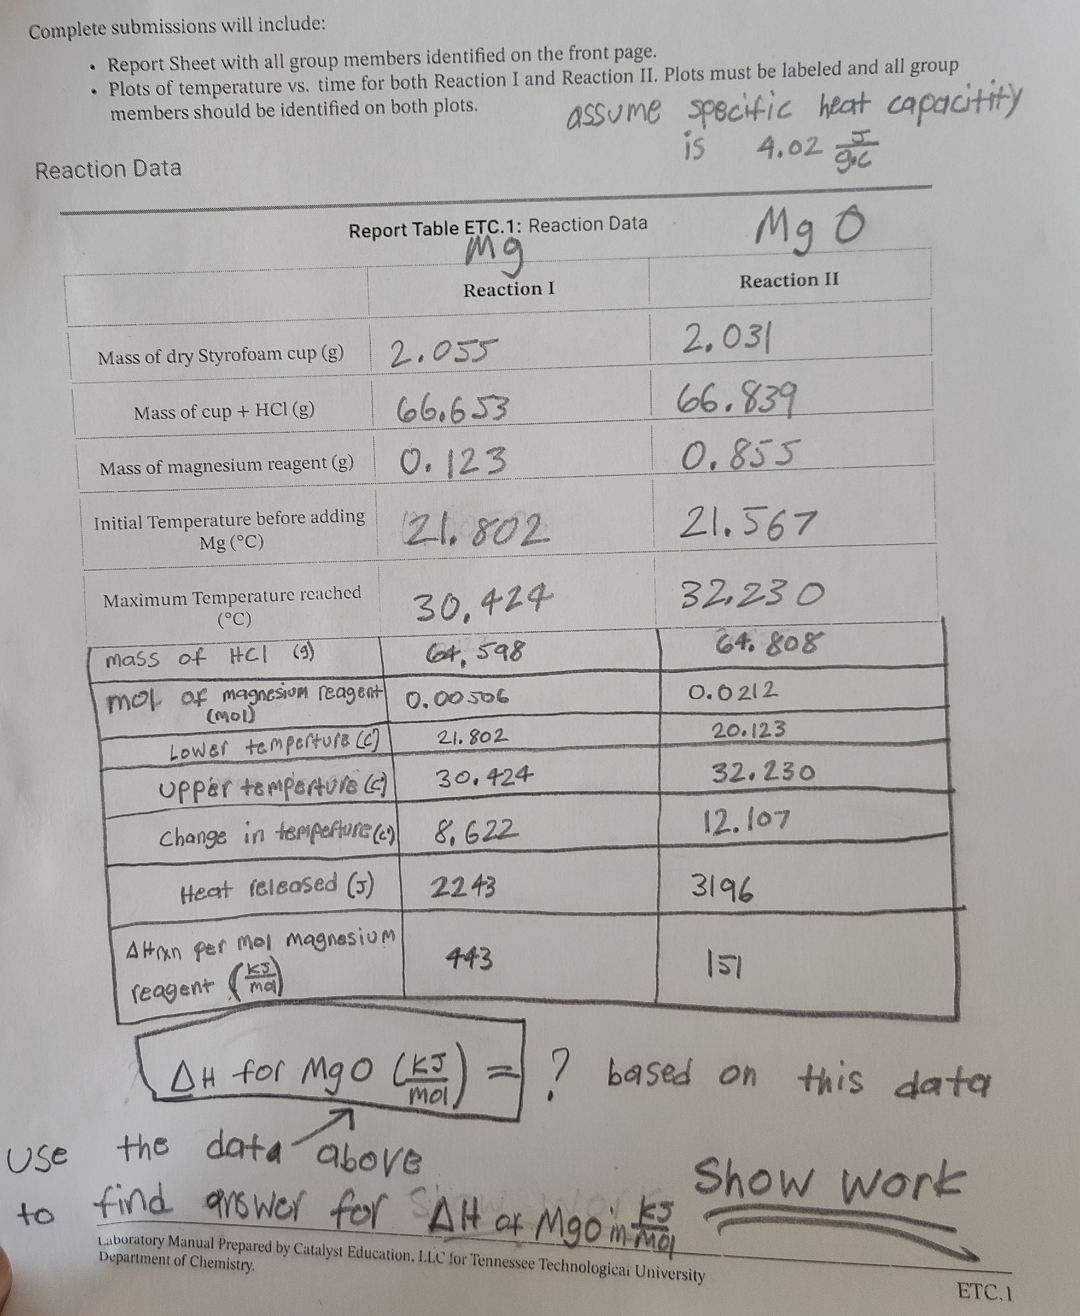 Complete submissions will include:
• Report Sheet with all group members identified on the front page.
• Plots of temperature vs. time for both Reaction I and Reaction II. Plots must be labeled and all group
members should be identified on both plots.
assume specific heat capacitity
is 4.02 J/g·c
Reaction Data
Report Table ETC.1: Reaction Data
Mg
MgO
Reaction I
Reaction II
Mass of dry Styrofoam cup (g) 2.055 2.031
Mass of cup + HCl (g) 66.653 66.839
Mass of magnesium reagent (g) 0.123 0.855
Initial Temperature before adding
Mg (°C) 21.802 21.567
Maximum Temperature reached
(°C) 30.424 32.230
mass of HCl (g) 64.598 64.808
mol of magnesium reagent
(mol) 0.00506 0.0212
Lower temperture (c) 21.802 20.123
upper temperture (c) 30.424 32.230
Change in temperture (c) 8.622 12.107
Heat released (J) 2243 3196
ΔHrxn per mol magnesium
reagent (KJ/mol) 443 151
ΔH for MgO (KJ/mol) = ? based on this data
use the data above
to find answer for ΔH of MgO in KJ/mol
Show work
Laboratory Manual Prepared by Catalyst Education, LLC for Tennessee Technological University
Department of Chemistry.
ETC.1